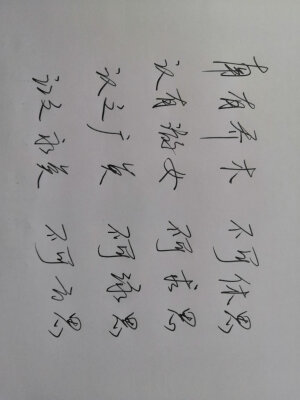 南有乔木 不可休思
汉有游女 不可求思
汉之广矣 不可泳思
江之永矣 不可方思